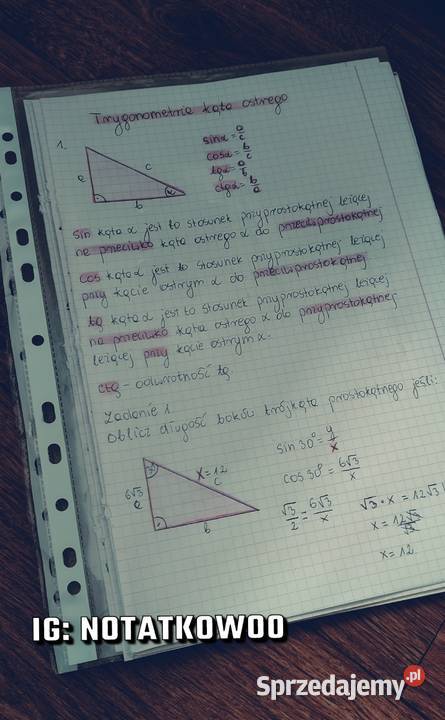 Trygonometria kąta ostrego
1.
a
c
b
α
sinα = a/c
cosα = b/c
tgα = a/b
ctgα = b/a
sin kąta α jest to stosunek przyprostokątnej leżącej
na przeciwko kąta ostrego α do przeciwprostokątnej
cos kąta α jest to stosunek przyprostokątnej leżącej
przy kącie ostrym α do przeciwprostokątnej
tg kąta α jest to stosunek przyprostokątnej leżącej
na przeciwko kąta ostrego α do przyprostokątnej
leżącej przy kącie ostrym α.
ctg - odwrotność tg
Zadanie 1
Oblicz długość boków trójkąta prostokątnego jeśli:
6√3
a
x = 12
c
b
sin 30° = y/x
cos 30° = 6√3/x
√3/2 = 6√3/x
√3 · x = 12√3
x = 12√3/√3
x = 12
IG: NOTATKOWOO
Sprzedajemy.pl